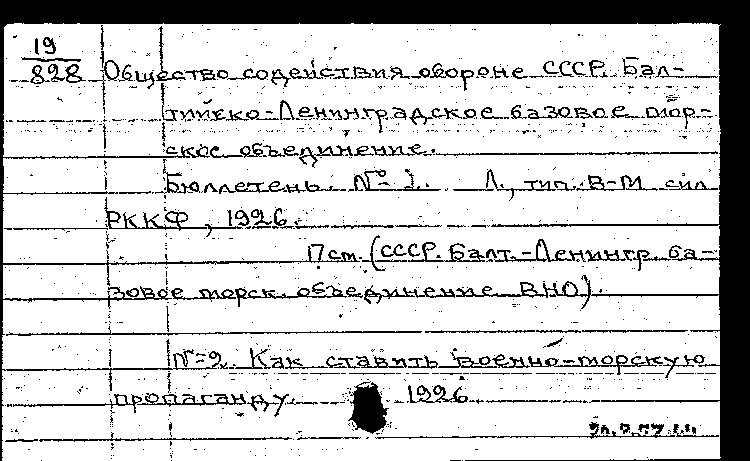 19
828
Общество содействия обороне СССР. Бал-
тийско-Ленинградское базовое мор-
ское объединение.
Бюллетень. №- 2. Л., тип. В-М сил
РККФ, 1926.
17 см. (СССР. Балт.-Ленингр. ба-
зовое морск. объединение ВНО).
№-2. Как ставить военно-морскую
пропаганду. 1926